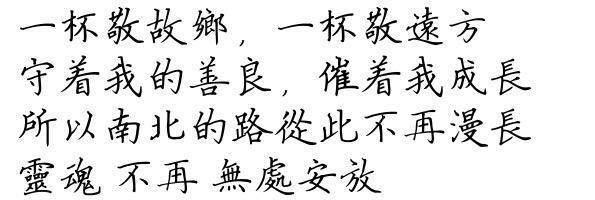 一杯敬故鄉，一杯敬遠方
守着我的善良，催着我成長
所以南北的路從此不再漫長
靈魂 不再 無處安放